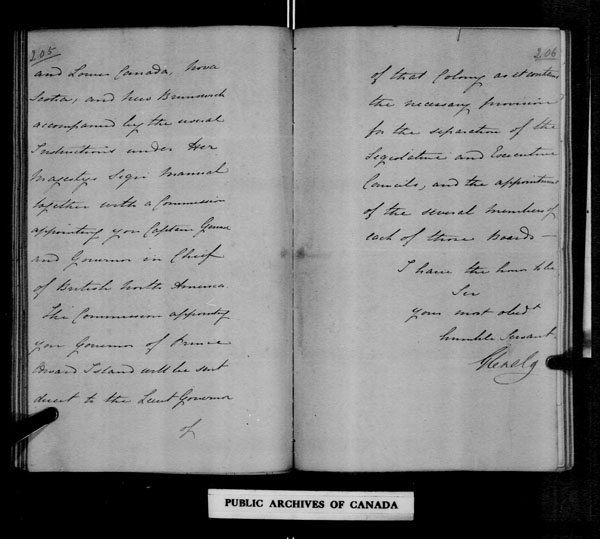 205
and Lower Canada, Nova
Scotia, and New Brunswick
accompanied by the usual
Instructions under Her
Majestys Sign Manual
together with a Commission
appointing you Captain General
and Governor in Chief
of British North America
The Commission appointing
you Governor of Prince
Edward Island will be sent
direct to the Lieut Governor
of
206
of that Colony as it contains
the necessary provision
for the separation of the
Legislative and Executive
Councils, and the appointment
of the several Members of
each of those Boards—
I have the honor to be
Sir
your most obedt
humble Servant
Glenelg
PUBLIC ARCHIVES OF CANADA